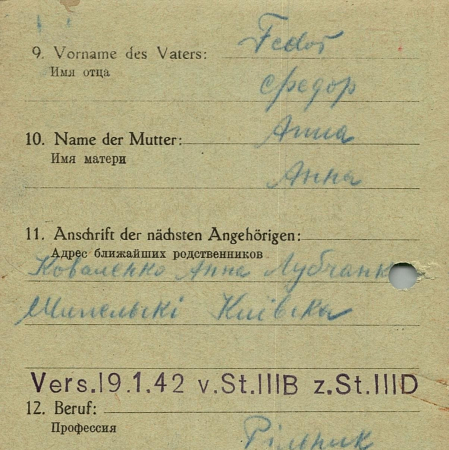 9. Vorname des Vaters: Fedor
Имя отца
Федор
10. Name der Mutter: Anna
Имя матери
Анна
11. Anschrift der nächsten Angehörigen:
Адрес ближайших родственников
Коваленко Анна
Київска
Vers.19.1.42 v.St.IIIB z.St.IIID
12. Beruf:
Профессия
Рільник